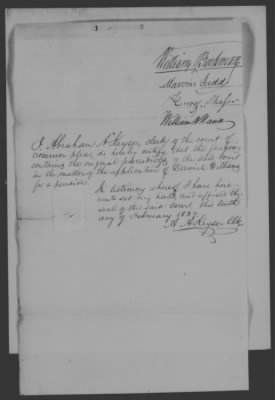 William Beekman
Marvin Judd
Henry Shafer
William Mann
I Abraham A Keyser, clerk of the court of
common pleas, do hereby certify that the foregoing
contains the original proceedings of the said court
in the matter of the application of Daniel Williams
for a pension.
In testimony whereof I have here
unto set my hand and affixed the
seal of the said court, this tenth
day of February 1837
A. A Keyser Clk